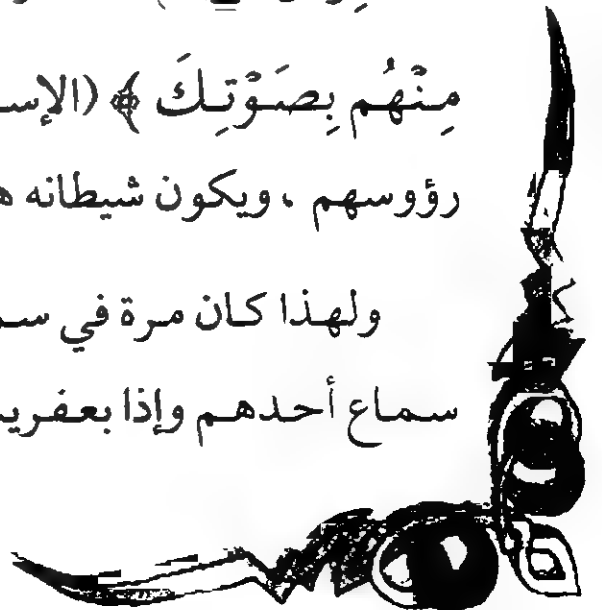 مِنْهُم بِصَوْتِكَ ﴾ (الإسـ
رؤوسهم ، ويكون شيطانه هـ
ولهذا كان مرة في سمـ
سماع أحدهم وإذا بعفريـ